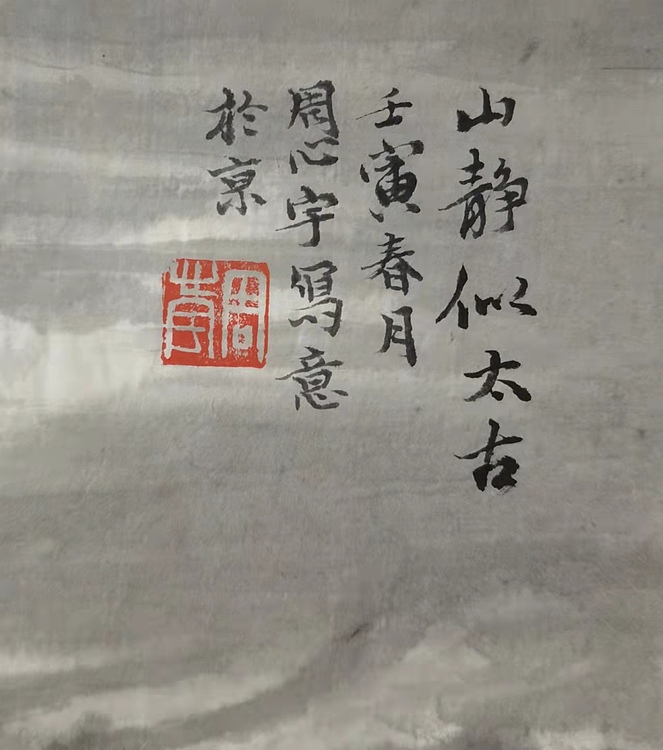 山静似太古
壬寅春月
周心宇寫意
於京
周